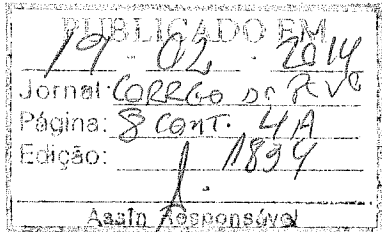 PUBLICADO EM
19 - 02 - 2014
Jornal: CORREO DO AVG
Página: 8 CONT. 4A
Edição: 1894
Assin Responsável